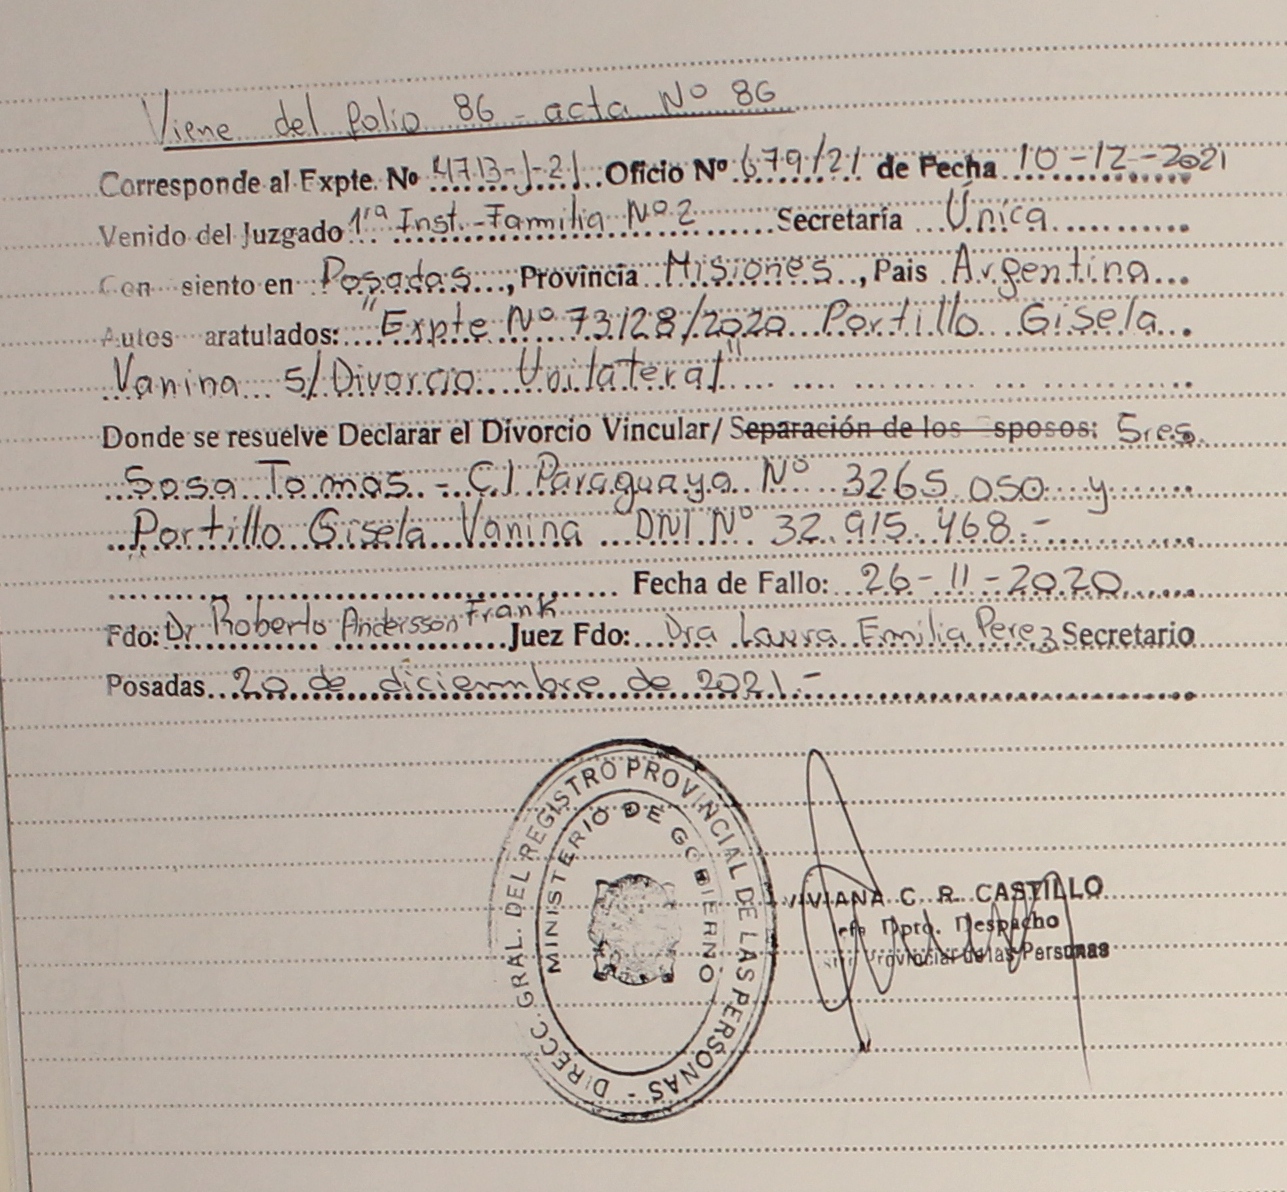 Viene del folio 86 - acta Nº 86
Corresponde al Expte. Nº 4713-J-21 Oficio Nº 679/21 de Fecha 10-12-2021
Venido del Juzgado 1ra Inst. Familia Nº 2 Secretaría Única
Con siento en Posadas, Provincia Misiones, Pais Argentina
Autos aratulados: "Expte Nº 73128/2020 Portillo Gisela
Vanina s/Divorcio Unilateral"
Donde se resuelve Declarar el Divorcio Vincular/ Separación de los sposos: Sres.
Sosa Tomas - C.I Paraguaya Nº 3265 050 y
Portillo Gisela Vanina DNI Nº 32.915.468.-
Fecha de Fallo: 26-11-2020
Fdo: Dr Roberto Andersson Frank Juez Fdo: Dra Laura Emilia Perez Secretario
Posadas 20 de diciembre de 2021.-
DIRECC. GRAL. DEL REGISTRO PROVINCIAL DE LAS PERSONAS -
MINISTERIO DE GOBIERNO
VIVIANA C. R. CASTILLO
Dpto. Despacho
Provincial de las Personas